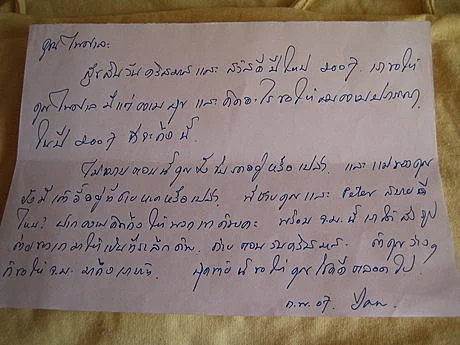 คุณไพศาล
สุขสันวันคริสมาสและสวัสดีปีใหม่ 2007. เราขอให้
คุณไพศาลมีแต่ความสุขและคิดอะไรขอให้สมความปรารถนา
ในปี 2007 ที่จะถึงนี้.
ไม่ทราบตอนนี้คุณยัง อยู่หรือเปล่า. และแม่ของคุณ
ยังมี อยู่ หรือเปล่า. พี่ชายคุณและ Peter สบายดี
ไหม? ฝากความคิดถึงให้พวกเขาด้วยค่ะ พร้อม จ.ม. นี้เราได้ส่งรูป
ถ่าย มาให้เป็นที่ระลึกด้วย. ถ่ายตอน คริสมาส. ถ้าคุณว่างๆ
ก็ขอให้ จ.ม. มาถึงเราบ้าง. สุดท้ายนี้ขอให้คุณโชคดีตลอดไป.
ก.พ. 07.